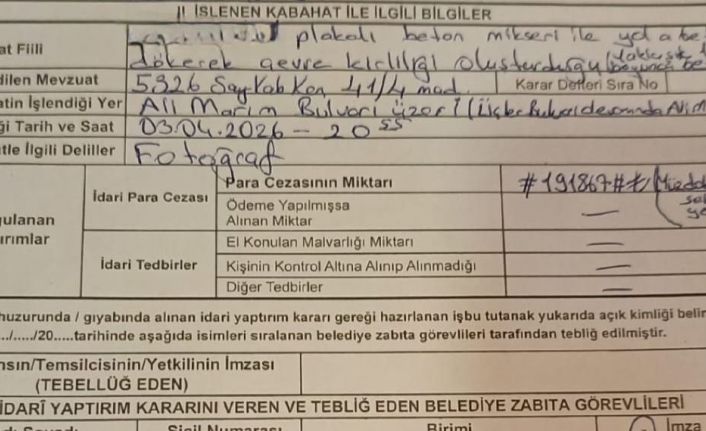 II İŞLENEN KABAHAT İLE İLGİLİ BİLGİLER
at Fiili plakalı beton mikseri ile yola be
dökerek çevre kirliliği oluşturduğu (yaklaşık
dilen Mevzuat 5326 Say Kab Kan 41/4 mad. Karar Defteri Sıra No
atin İşlendiği Yer Ali Marım Bulvarı üzeri
ği Tarih ve Saat 03.04.2026 - 20 55
tle İlgili Deliller Fotoğraf
İdari Para Cezası Para Cezasının Miktarı #191867#₺
Ödeme Yapılmışsa
Alınan Miktar —
gulanan
ırımlar
İdari Tedbirler El Konulan Malvarlığı Miktarı —
Kişinin Kontrol Altına Alınıp Alınmadığı —
Diğer Tedbirler —
huzurunda / gıyabında alınan idari yaptırım kararı gereği hazırlanan işbu tutanak yukarıda açık kimliği belir
../...../20.....tarihinde aşağıda isimleri sıralanan belediye zabıta görevlileri tarafından tebliğ edilmiştir.
nsın/Temsilcisinin/Yetkilinin İmzası
(TEBELLÜĞ EDEN)
İDARİ YAPTIRIM KARARINI VEREN VE TEBLİĞ EDEN BELEDİYE ZABITA GÖREVLİLERİ
Sicil Numarası Birimi İmza